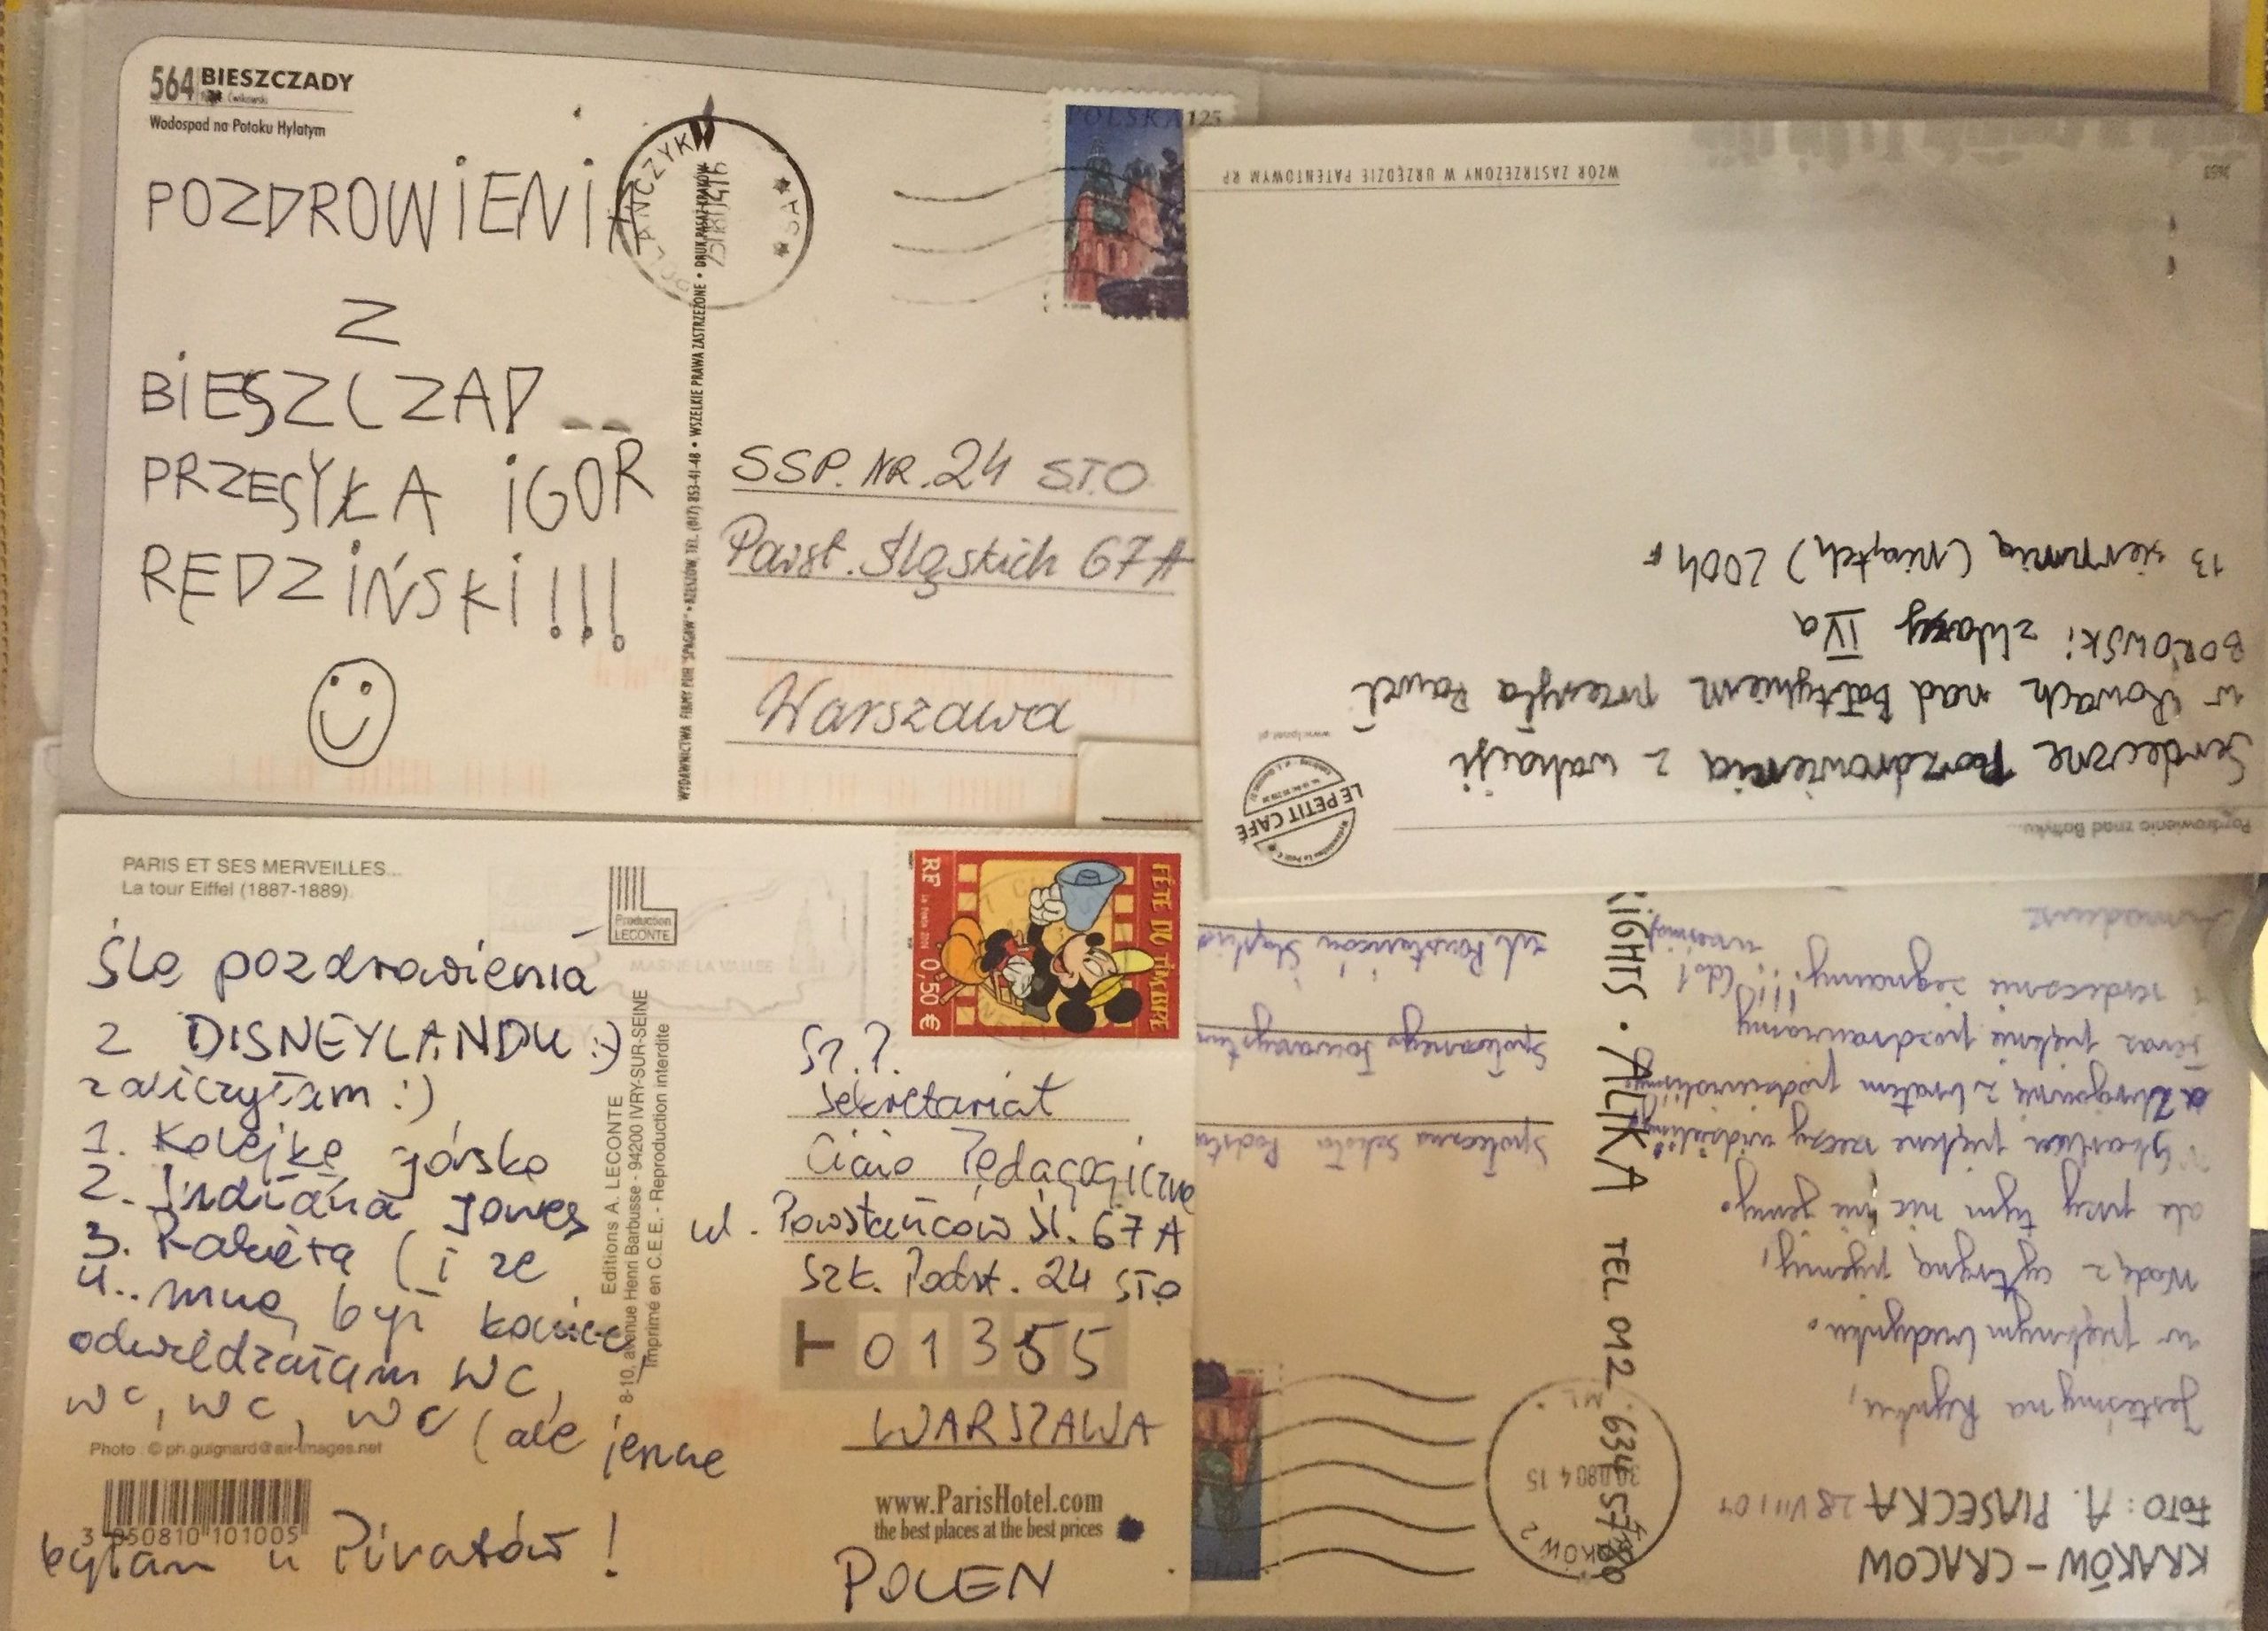 564 BIESZCZADY
Wodospad na Potoku Hylatym
POZDROWIENIA
Z
BIESZCZAD
PRZESYŁA IGOR
RĘDZIŃSKI!!!
WYDAWNICTWA FIRMY PUH "SPAGAW" • RZESZÓW, TEL. (017) 853-41-48 • WSZELKIE PRAWA ZASTRZEŻONE • DRUK PASAŻ KRAKÓW
POLAŃCZYK
POLSKA 125
SSP. NR. 24 STO
Powst. Śląskich 67A
Warszawa
WZÓR ZASTRZEŻONY W URZĘDZIE PATENTOWYM RP
Pozdrowienia znad Bałtyku...
Serdeczne Pozdrowienia z wakacji
w Rowach nad Bałtykiem przesyła Paweł
BOROWSKI z klasy IVa
13 sierpnia (piątek) 2004 r
LE PETIT CAFE
PARIS ET SES MERVEILLES...
La tour Eiffel (1887-1889)
Production
LECONTE
MARNE LA VALLEE
Śle pozdrowienia
z DISNEYLANDU :)
zaliczyłam :)
1. Kolejkę górską
2. Indiana Jones
3. Rakieta (i ze
4.. mną był koniec
odwiedzałam WC,
WC, WC, WC (ale jeszcze
byłam u Piratów!
Photo : © ph.guignard@air-images.net
3 050810 101005
Editions A. LECONTE
8-10, avenue Henri Barbusse - 94200 IVRY-SUR-SEINE
Imprimé en C.E.E. - Reproduction interdite
FÊTE DU TIMBRE
RF
0,50 €
Sz. ?
Sekretariat
Ciało Pedagogiczne
ul. Powstańców Śl. 67A
Szk. Podst. 24 STO
T 01355
WARSZAWA
www.ParisHotel.com
the best places at the best prices
POLEN
KRAKÓW - CRACOW
FOTO: A. PIASECKA 28 VIII 04
Jesteśmy na Rynku,
w pięknym budynku.
Wodę z cytryną pijemy,
ale przy tym nic nie jemy.
piękne rzeczy widzieliśmy
z bratem podziwialiśmy
Teraz pięknie pozdrawiamy
i serdecznie żegnamy!
RIGHTS • ALIKA TEL. 012 634 57 80
Społeczna Szkoła Podsta
Społecznego Towarzystwa
ul. Powstańców Śląskich